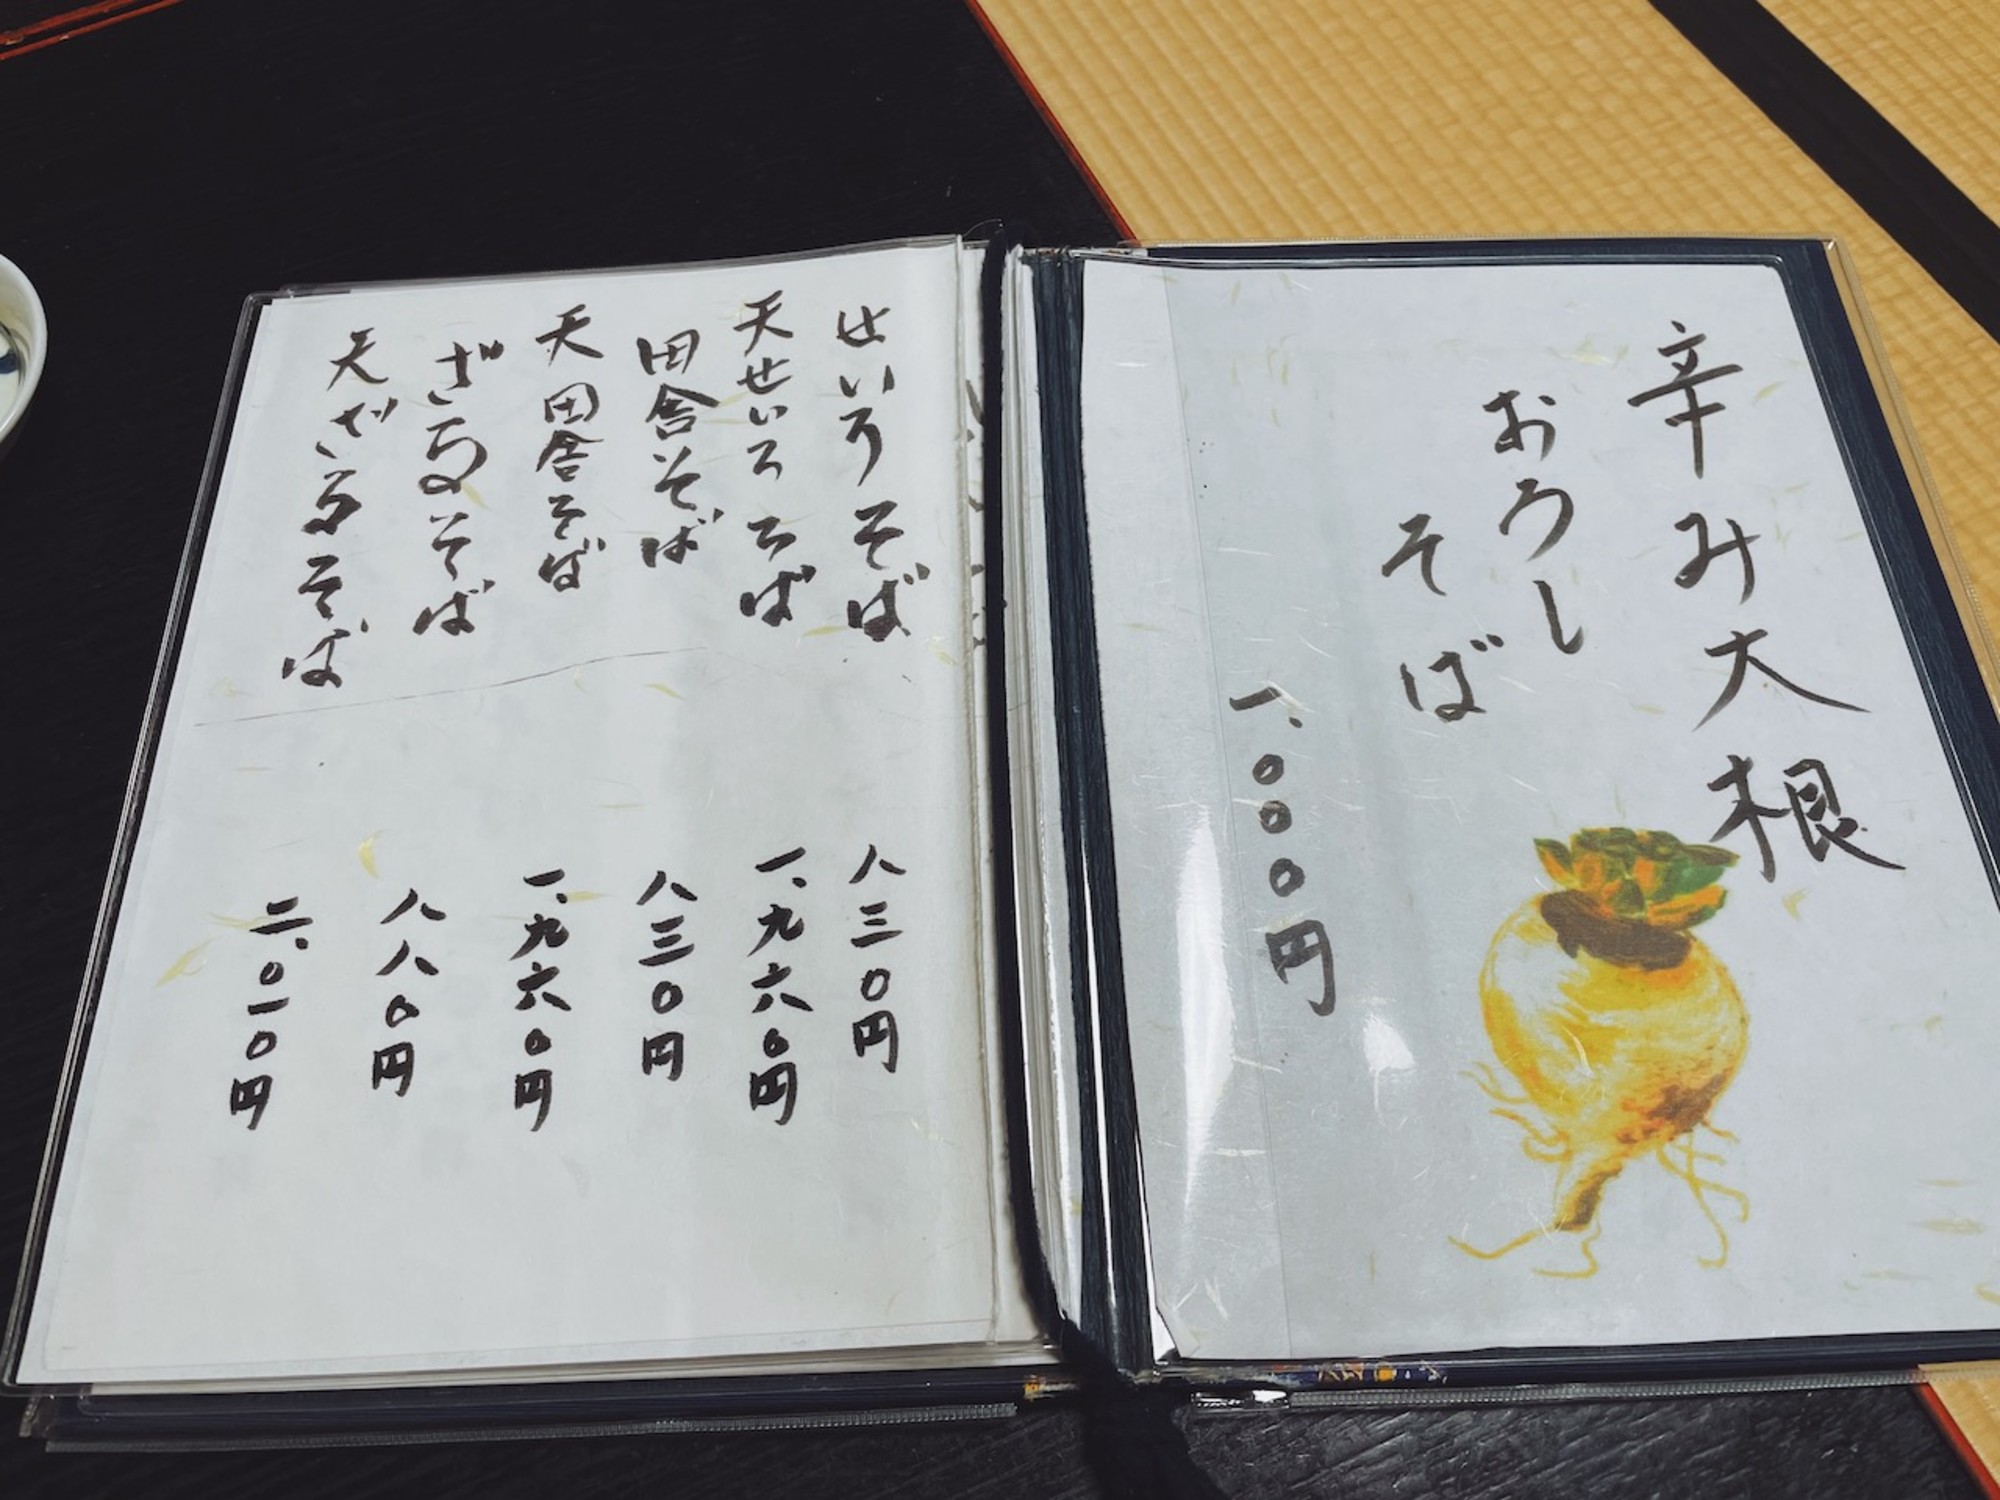 辛み大根
おろし
そば
一、〇〇〇円
せいろそば
八三〇円
天せいろそば
一、九六〇円
田舎そば
八三〇円
天田舎そば
一、九六〇円
ざるそば
八八〇円
天ざるそば
二、〇一〇円